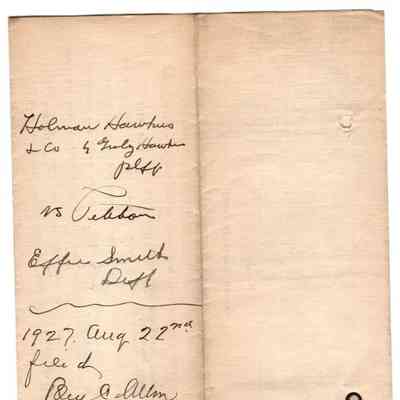 Holman Hawkins
& Co by Hawkins
plff
vs Petition
Effie Smith
Deff
1927. Aug 22nd
filed
Ben C. Allin